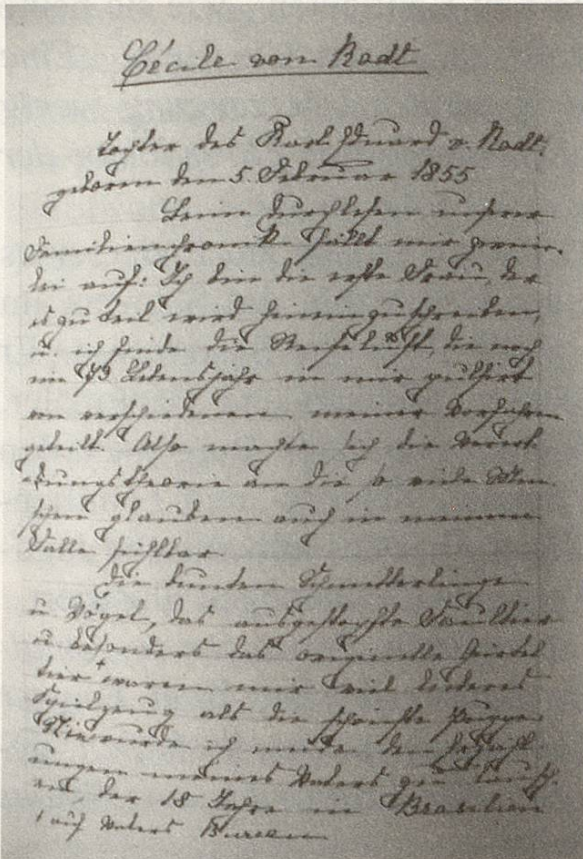 Cécile von Rodt
Tochter des Karl Eduard v. Rodt,
geboren den 5. Februar 1855
Beim Durchlesen unserer
Familienchronik fällt mir zweier-
lei auf: Ich bin die erste Frau, der
es zu teil wird hineinzuschreiben,
u. ich finde die Reiselust, die noch
im 73 Lebensjahr in mir pulsirt
von verschiedenen meiner Vorfahren
geteilt. Also machte sich die Verer-
bungstheorie an die so viele Men-
schen glauben auch in meinem
Falle fühlbar
Die bunten Schmetterlinge
u. Vögel, das ausgestopfte Faultier
u besonders das originelle Gürtel
tier + waren mir viel lieberes
Spielzeug als die schönste Puppe
Nie wurde ich müde den Erzähl-
ungen meines Vaters zu lausch-
en, der 18 Jahre in Brasilien
+ auf Vaters Bureau